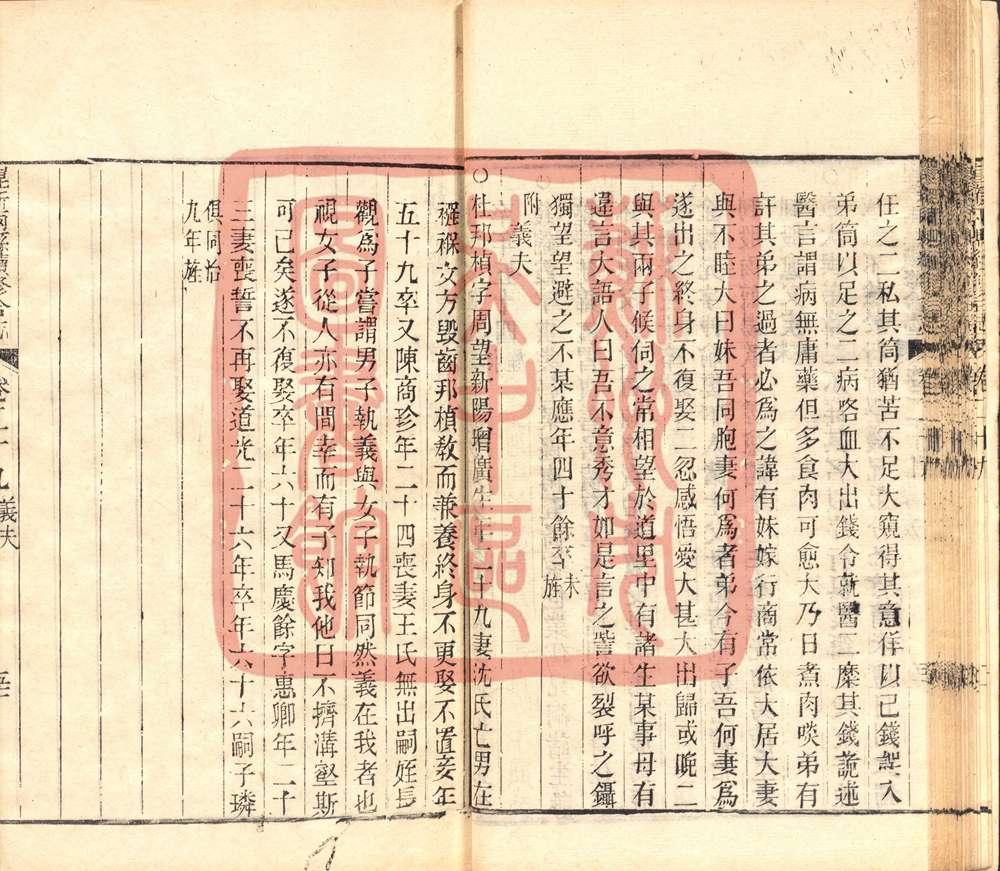 任之二私其筒猶苦不足大窺得其意佯以己錢誤入
弟筒以足之二病咯血大出錢令就醫二糜其錢詭述
醫言謂病無庸藥但多食肉可愈大乃日煮肉啖弟有
訐其弟之過者必為之諱有妹嫁行商常依大居大妻
與不睦大曰妹吾同胞妻何為者弟今有子吾何妻為
遂出之終身不復娶二忽感悟愛大甚大出歸或晚二
與其兩子候伺之常相望於道里中有諸生某事母有
違言大語人曰吾不意秀才如是言之眥欲裂呼之鑷
獨望望避之不某應年四十餘卒未旌
附義夫
○杜邦楨字周望新陽增廣生年二十九妻沈氏亡男在
襁褓女方毀齒邦楨教而兼養終身不更娶不置妾年
五十九卒又陳商珍年二十四喪妻王氏無出嗣姪長
觀為子嘗謂男子執義與女子執節同然義在我者也
視女子從人亦有間幸而有子知我他日不擠溝壑斯
可已矣遂不復娶卒年六十又馬慶餘字惠卿年二十
三妻喪誓不再娶道光二十六年卒年六十六嗣子璘
俱同治
九年旌
卷二十九 義夫